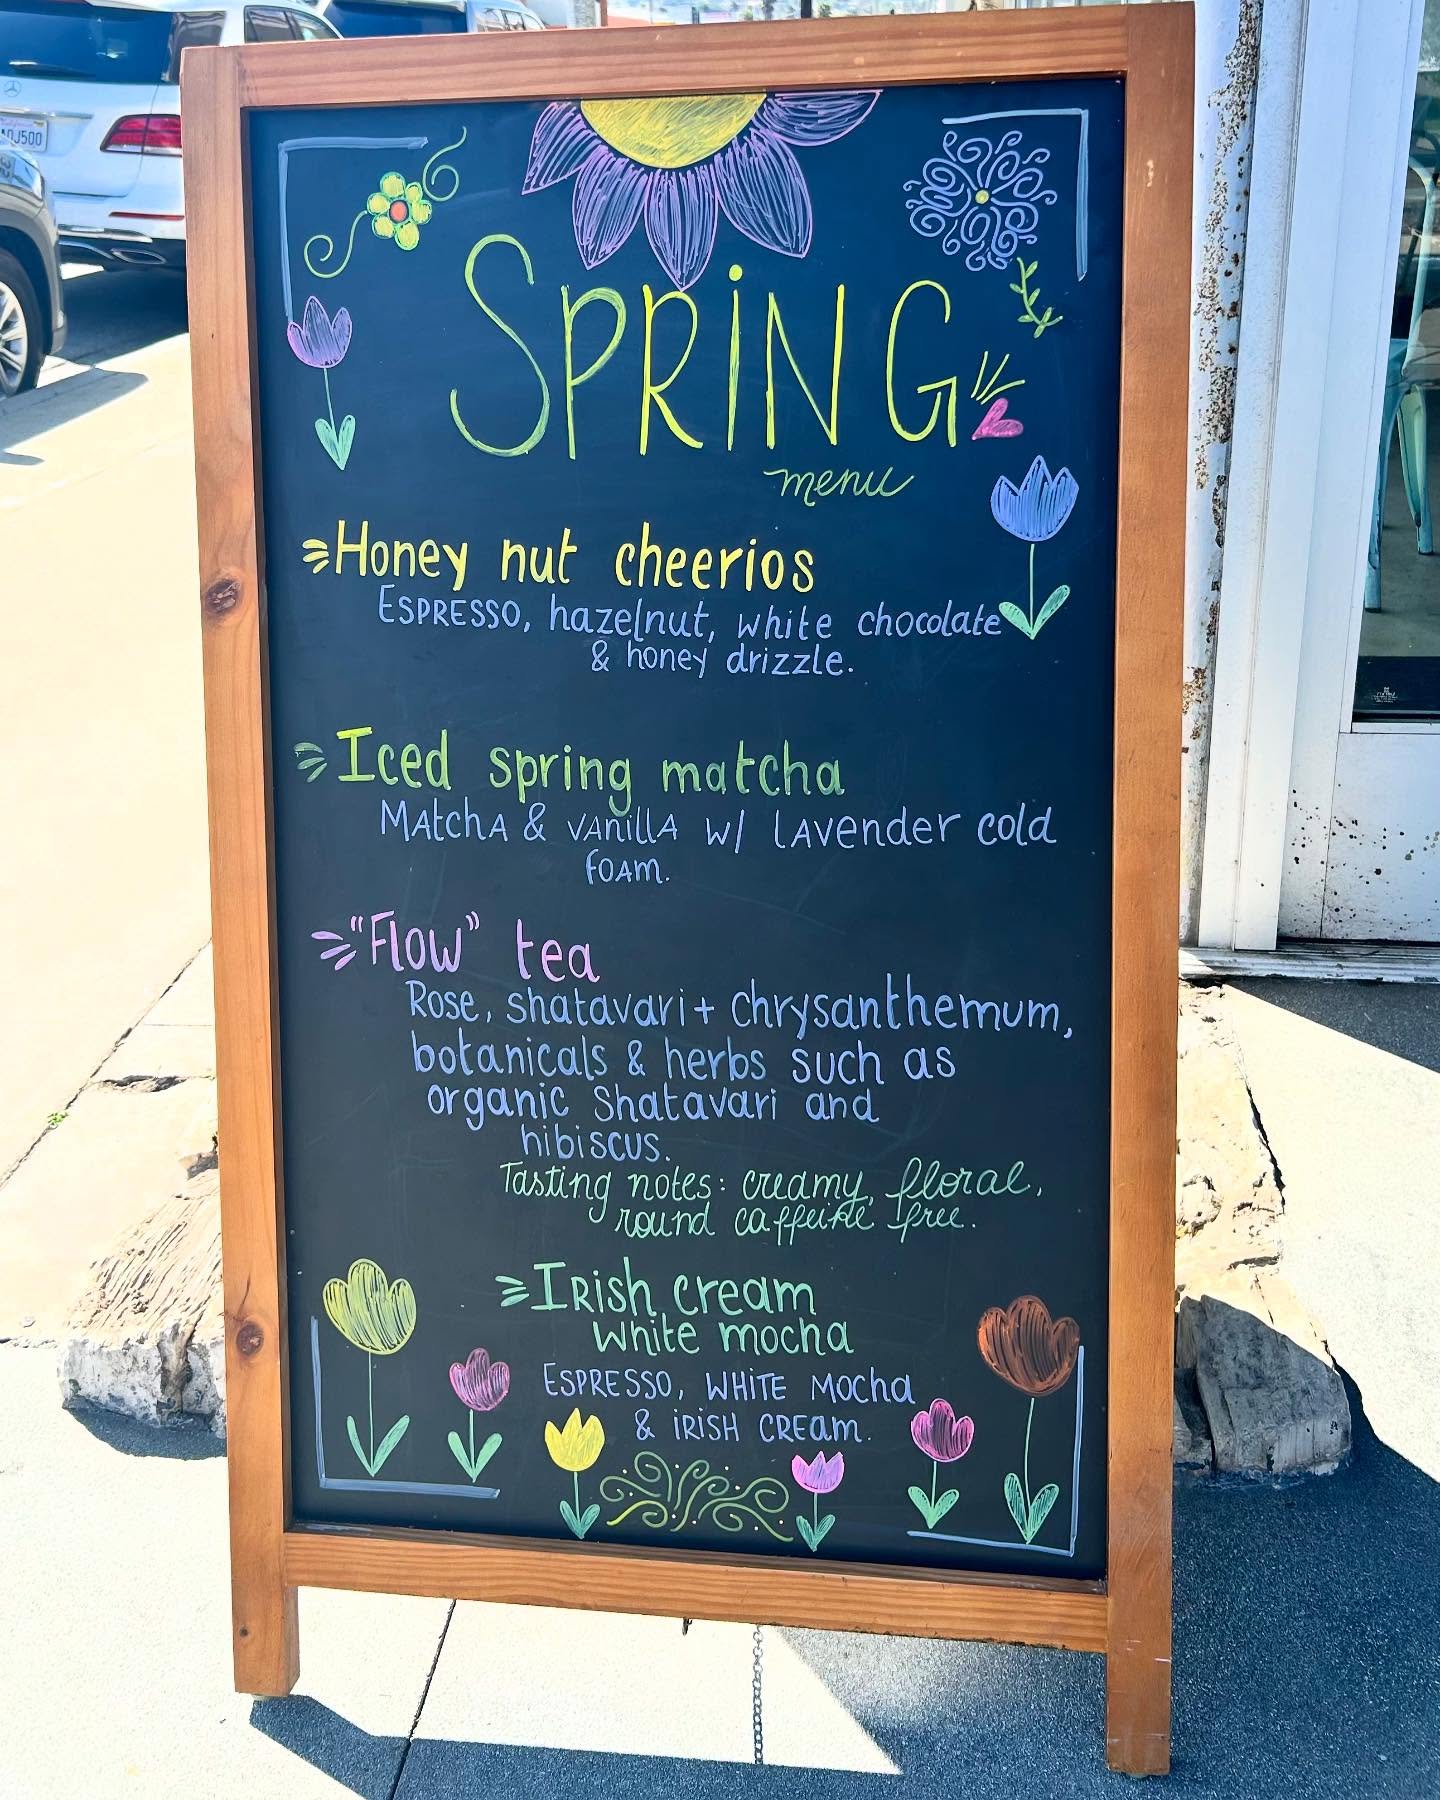 AQJ500
SPRiNG
menu
Honey nut cheerios
ESPRESSO, hazelnut, white chocolate
& honey drizzle.
Iced spring matcha
MAtchA & vAnillA w/ lAvender cold
foAm.
"Flow" tea
Rose, shatavari + chrysanthemum,
botanicals & herbs such as
organic shatavari and
hibiscus.
Tasting notes: creamy, floral,
round caffeine free.
IRish cream
white mocha
ESPRESSO, WHiTE Mocha
& iRiSH CREam.